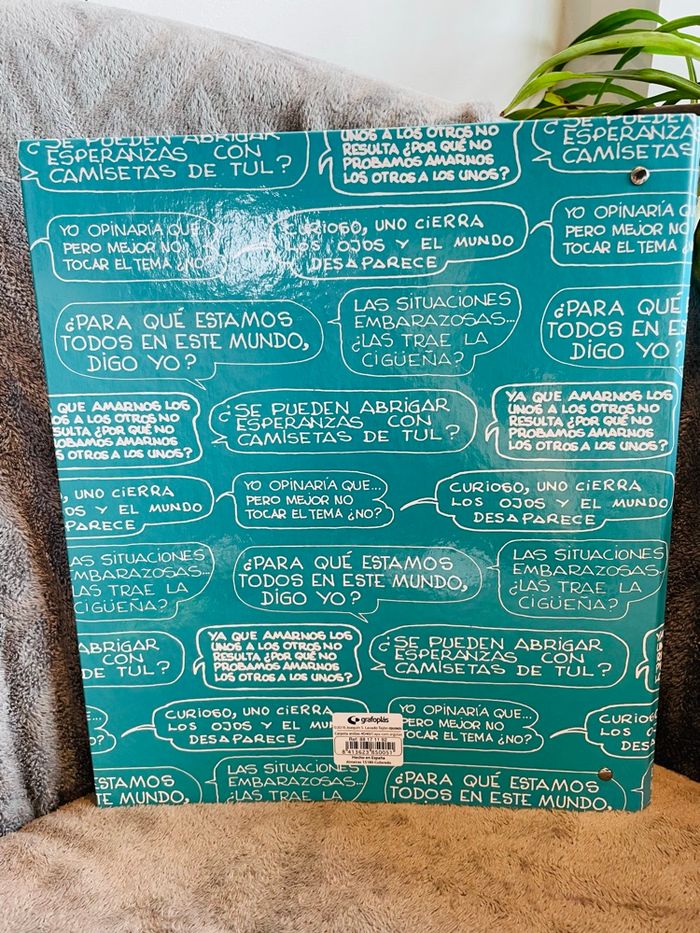 ¿SE PUEDEN ABRIGAR
ESPERANZAS CON
CAMISETAS DE TUL?
UNOS A LOS OTROS NO
RESULTA ¿POR QUÉ NO
PROBAMOS AMARNOS
LOS OTROS A LOS UNOS?
¿SE PUEDEN
ESPERANZA
CAMISETAS
YO OPINARÍA QUE
PERO MEJOR NO
TOCAR EL TEMA ¿NO?
CURIOSO, UNO CIERRA
LOS OJOS Y EL MUNDO
DESAPARECE
YO OPINARÍA Q
PERO MEJOR N
TOCAR EL TEMA
¿PARA QUÉ ESTAMOS
TODOS EN ESTE MUNDO,
DIGO YO?
LAS SITUACIONES
EMBARAZOSAS...
¿LAS TRAE LA
CIGÜEÑA?
¿PARA QUÉ E
TODOS EN ES
DIGO YO?
QUE AMARNOS LOS
OS A LOS OTROS NO
SULTA ¿POR QUÉ NO
OBAMOS AMARNOS
OTROS A LOS UNOS?
¿SE PUEDEN ABRIGAR
ESPERANZAS CON
CAMISETAS DE TUL?
YA QUE AMARNOS LOS
UNOS A LOS OTROS NO
RESULTA ¿POR QUÉ NO
PROBAMOS AMARNOS
LOS OTROS A LOS UNOS?
, UNO CIERRA
OS Y EL MUNDO
PARECE
YO OPINARÍA QUE...
PERO MEJOR NO
TOCAR EL TEMA ¿NO?
CURIOSO, UNO CIERRA
LOS OJOS Y EL MUNDO
DESAPARECE
AS SITUACIONES
MBARAZOSAS...
¿LAS TRAE LA
CIGÜEÑA?
¿PARA QUÉ ESTAMOS
TODOS EN ESTE MUNDO,
DIGO YO?
LAS SITUACIONES
EMBARAZOSAS...
¿LAS TRAE LA
CIGÜEÑA?
ABRIGAR
CON
DE TUL?
YA QUE AMARNOS LOS
UNOS A LOS OTROS NO
RESULTA ¿POR QUÉ NO
PROBAMOS AMARNOS
LOS OTROS A LOS UNOS?
¿SE PUEDEN ABRIGAR
ESPERANZAS CON
CAMISETAS DE TUL?
CURIOSO, UNO CIERRA
LOS OJOS Y EL MU
DESAPARECE
YO OPINARÍA QUE...
PERO MEJOR NO
TOCAR EL TEMA ¿NO?
CURIOSO,
LOS OJOS
DESA
grafoplás
Ref. 88 17 11 52
8 413623 850051
Hecho en España
STAMOS
TE MUNDO,
LAS SITUACIONES
EMBARAZOSAS...
¿LAS TRAE LA
¿PARA QUÉ ESTAMOS
TODOS EN ESTE MUNDO,